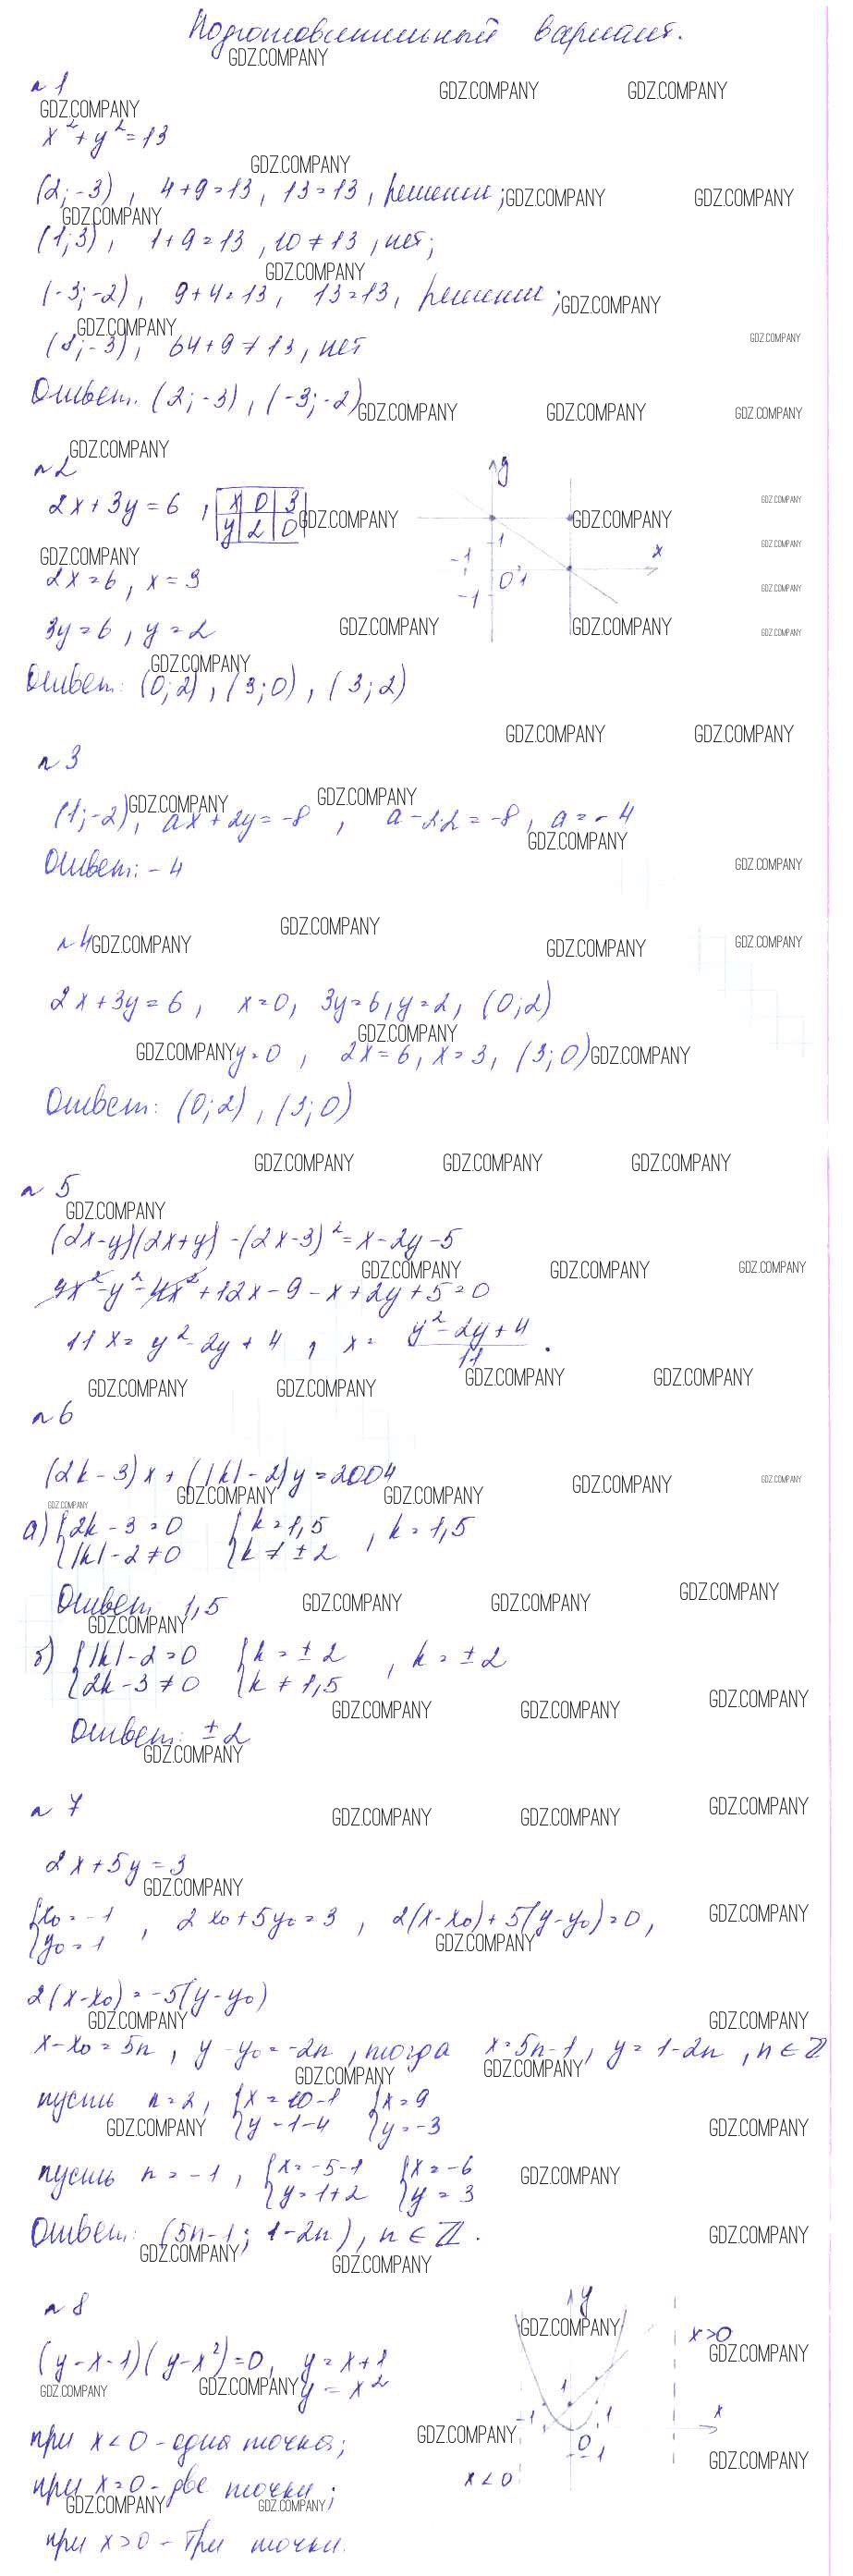 Подготовительный вариант.
№ 1
x² + y² = 13
(2; -3), 4+9=13, 13=13, решение;
(1; 3), 1+9=13, 10≠13, нет;
(-3; -2), 9+4=13, 13=13, решение;
(8; -3), 64+9≠13, нет
Ответ: (2; -3), (-3; -2)
№ 2
2x + 3y = 6, x 0 3
y 2 0
2x=6, x=3
3y=6, y=2
y
1
-1
x
0 1
-1
Ответ: (0; 2), (3; 0), (3; 2)
№ 3
(1; -2), ax + 2y = -8, a - 2·2 = -8, a = -4
Ответ: -4
№ 4
2x + 3y = 6, x=0, 3y=6, y=2, (0; 2)
y=0, 2x=6, x=3, (3; 0)
Ответ: (0; 2), (3; 0)
№ 5
(2x-y)(2x+y) - (2x-3)² = x-2y-5
4x² - y² - 4x² + 12x - 9 - x + 2y + 5 = 0
11x = y² - 2y + 4, x = (y² - 2y + 4)/11.
№ 6
(2k-3)x + (|k|-2)y = 2004
а) {2k-3=0 {k=1,5, k=1,5
{|k|-2≠0 {k≠±2
Ответ 1,5
б) {|k|-2=0 {k=±2, k=±2
{2k-3≠0 {k≠1,5
Ответ: ±2
№ 7
2x + 5y = 3
{x₀=-1, 2x₀+5y₀=3, 2(x-x₀)+5(y-y₀)=0,
{y₀=1
2(x-x₀) = -5(y-y₀)
x-x₀=5n, y-y₀=-2n, тогда x=5n-1, y=1-2n, n∈Z
пусть n=2, {x=10-1 {x=9
{y=1-4 {y=-3
пусть n=-1, {x=-5-1 {x=-6
{y=1+2 {y=3
Ответ: (5n-1; 1-2n), n∈Z.
№ 8
(y-x-1)(y-x²)=0, y=x+1
y=x²
y
x>0
1
-1 1
x
0
-1
x<0
при x<0 - одна точка;
при x=0 - две точки;
при x>0 - три точки.
GDZ.COMPANY